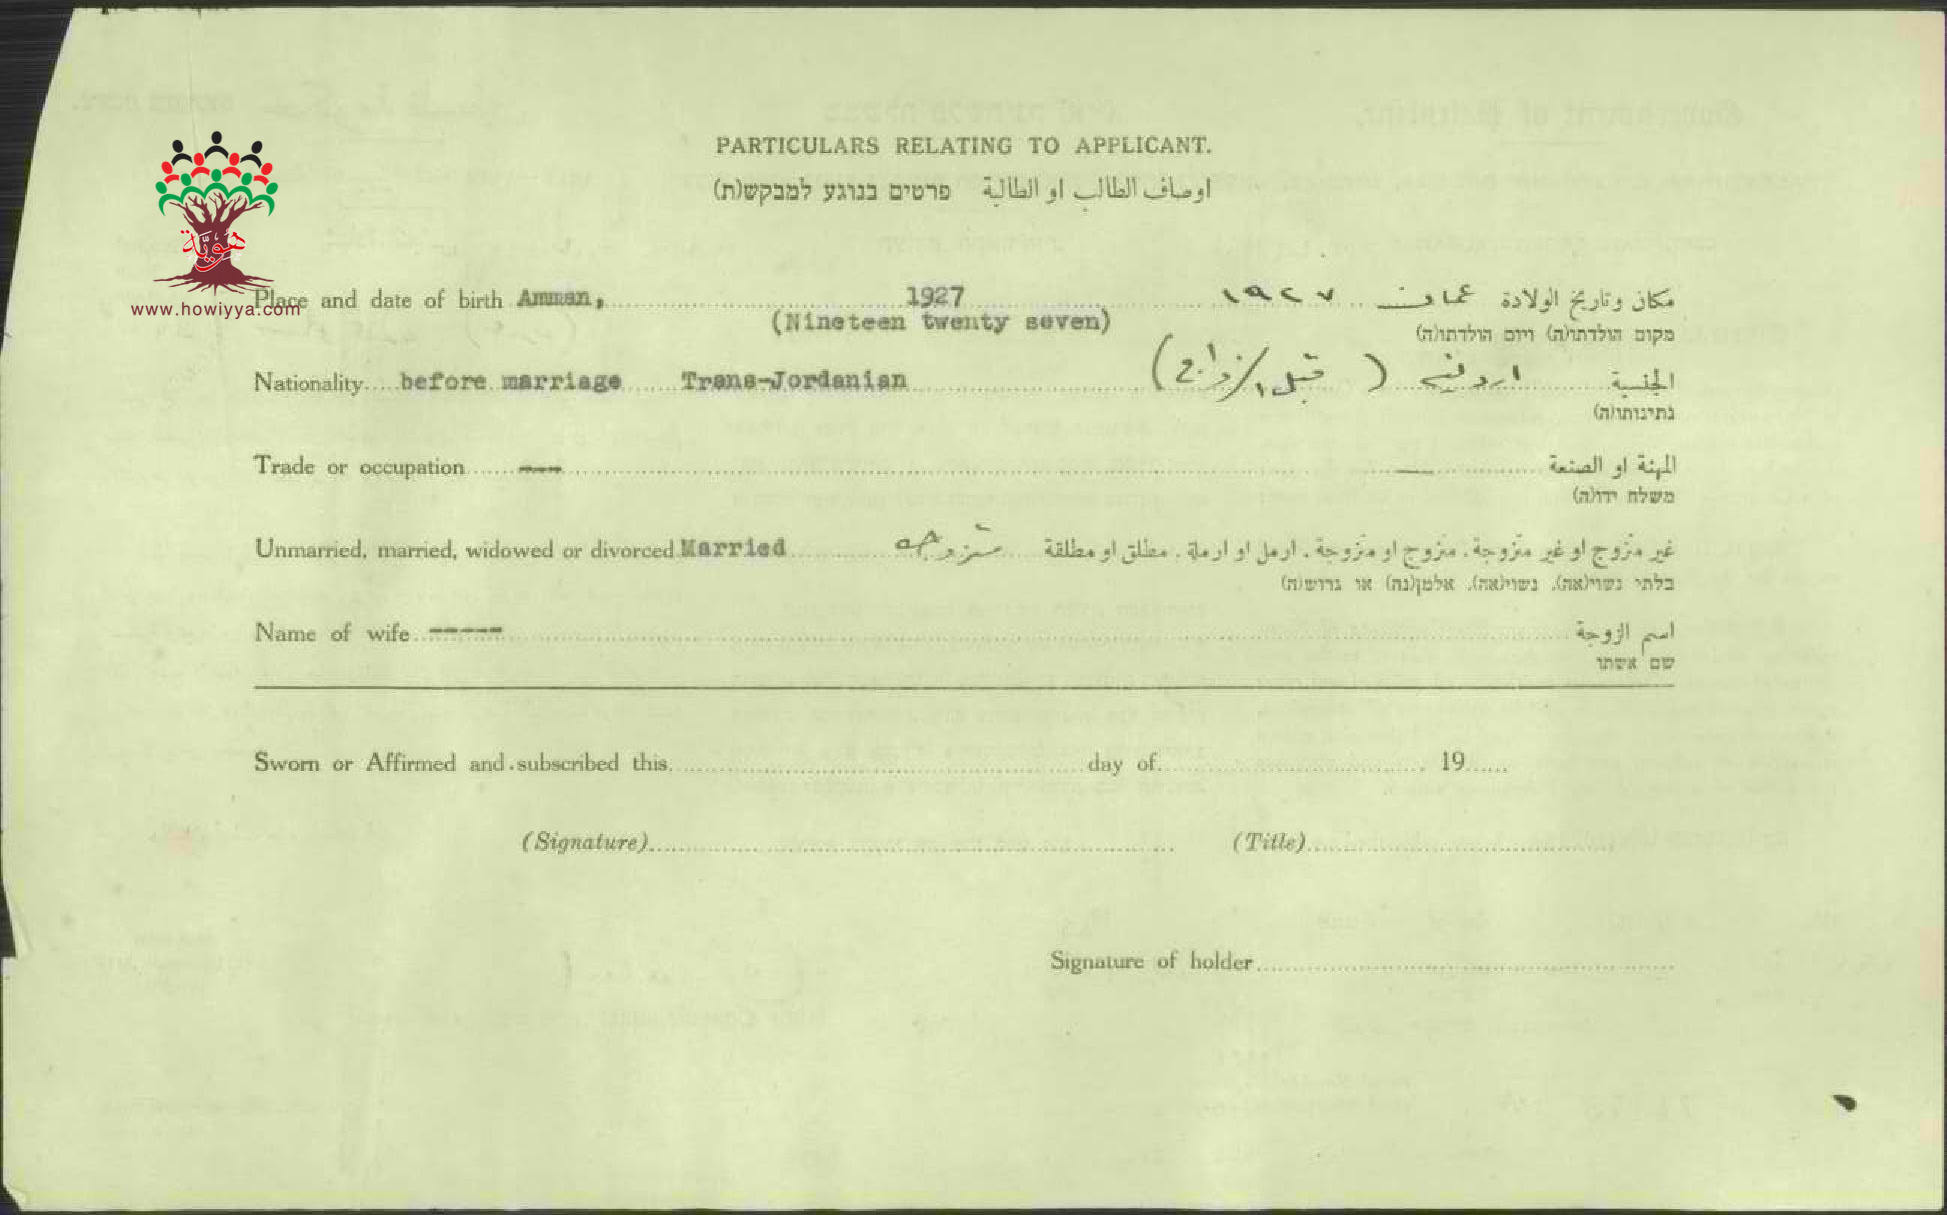 PARTICULARS RELATING TO APPLICANT.
اوصاف الطالب او الطالبة פרטים בנוגע למבקש(ת)
هوية
www.howiyya.com
Place and date of birth Amman, 1927 عمان ١٩٢٧ مكان وتاريخ الولادة
(Nineteen twenty seven)
מקום הולדתו(ה) ויום הולדתו(ה)
Nationality before marriage Trans-Jordanian الجنسية اردنية (قبل الزواج)
נתינותו(ה)
Trade or occupation --- المهنة او الصنعة —
משלח ידו(ה)
Unmarried, married, widowed or divorced Married غير متزوج او غير متزوجة. متزوج او متزوجة. ارمل او ارملة. مطلق او مطلقة متزوجه
בלתי נשוי(אה). נשוי(אה). אלמן(נה) או גרוש(ה)
Name of wife ----- اسم الزوجة
שם אשתו
Sworn or Affirmed and subscribed this day of 19
(Signature) (Title)
Signature of holder